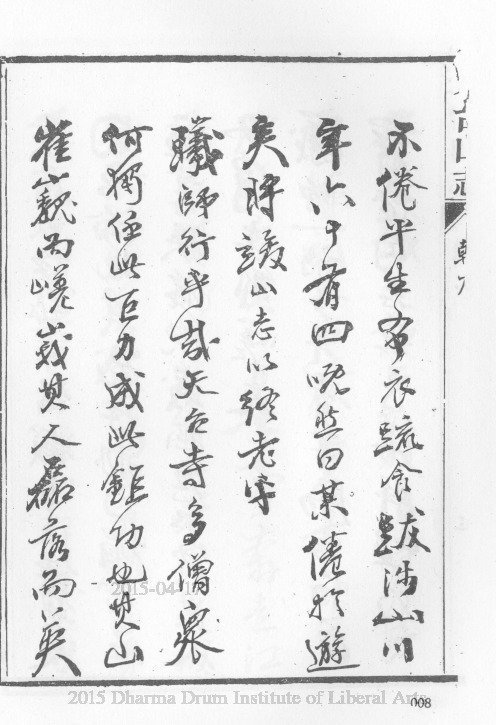 不倦平生布衣蔬食跋涉山川
年六十有四然曰某倦於遊
矣將山志以終老乎
師行乎哉天台寺多僧眾
何獨任此百力成此鉅功也其山
崔巍而嵯峨其人磊落而英
山志
2015-04-1
2015 Dharma Drum Institute of Liberal Arts
008